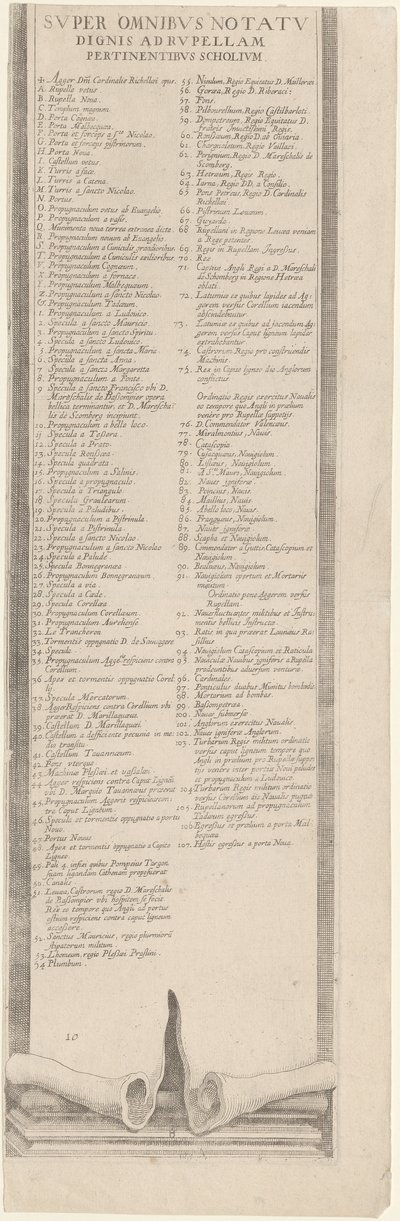 SVPER OMNIBVS NOTATV
DIGNIS AD RVPELLAM
PERTINENTIBVS SCHOLIVM
Agger Dni Cardinalis Richelloei opus.
A. Rupella vetus
B. Rupella Nova.
C. Templum magnum
D. Porta Cognea
E. Porta Malbequea
F. Porta et forcipes a Sto Nicolao.
G. Porta et forceps pistrinorum.
H. Porta Nova.
I. Castellum vetus.
K. Turris a face.
L. Turris a Catena.
M. Turris a sancto Nicolao.
N. Portus.
O. Propugnaculum vetus ab Evangelio
P. Propugnaculum a
Q. Munimenta nova terrea extronea dicta.
R. Propugnaculum novum ab Evangelio
S. Propugnaculum a Cuniculis grandioribus
T. Propugnaculum a Cuniculis exilioribus
V. Propugnaculum Cogneum.
X. Propugnaculum a fornace.
Y. Propugnaculum Malbequeum.
Z. Propugnaculum a sancto Nicolao
Propugnaculum Tadanum.
1. Propugnaculum a Ludovico.
2. Specula a sancto Mauricio.
3. Propugnaculum a sancto Spiritu.
4. Specula a sancto Ludovico
5. Propugnaculum a sancta Maria.
6. Specula a sancta Anna.
7. Specula a sancta Margaretta
8. Propugnaculum a Ponte
9. Specula a sancto Francisco vbi D.
Mareschalis de Bassompier opera
bellica terminantur, et D. Maresca-
lis de Scomberg incipiunt.
10. Propugnaculum a bello loco.
11. Specula a Testera.
12. Specula a Prato.
13. Specula Ronsaea.
14. Specula quadrata.
15. Propugnaculum a Salinis.
16. Specula a propugnaculo.
17. Specula a Triangulo
18. Specula Grauleorum.
19. Specula a Peludibus.
20. Propugnaculum a Pistrinula.
21. Specula a Pistrinula
22. Specula a sancto Nicolao.
23. Propugnaculum a sancto Nicolao
24. Specula a Palude
25. Specula Bonnegranaea
26. Propugnaculum Bonnegranaeum
27. Specula a via.
28. Specula a Caede.
29. Specula Corellea
30. Propugnaculum Corellaeum.
31. Propugnaculum Aurelionse
32. Le Trancheron
33. Tormentis oppugnatio D. de
34. Specula
35. Propugnaculum Aggeri respiciens contra
Corellum.
36. Apex et tormentis oppugnatio Corel-
lij.
37. Specula Mercatorum.
38. Agger Respiciens contra Corellum vbi
praeerat D. Marillaqueus.
39. Castellum D. Marillaquei.
40. Castellum a desficiente pecunia in me-
dio transitu
41. Castellum Tovannaeum.
42. Pons vterque
43. Machinae Plessaei et
44. Agger respiciens contra Caput Ligneum
vbi D. Marquio Tovanneus praeerat
45. Propugnaculum Aggeris respiciens con-
tra Caput Ligneum.
46. Specula et tormentis oppugnatio a portu
Novo.
47. Portus Novus.
48. Apex et tormentis oppugnatio a Capite
Ligneo.
49. Pali 4. infixi quibus Pompeius Targon
suam ligandam Cathenam proposuerat
50. Canalis
51. Leuvea, Castrorum regio D. Mareschalis
de Bassompier vbi hospitem se fecit
Rex eo tempore quo Angli ad portus
ostium respiciens contra caput ligneum
accessere.
52. Sanctus Mauricius, regio plurimorum
stipatorum militum.
53. Lhomeum, regio Plessaei Praslini.
54. Plumbum.
55. Nieulum, Regio Equitatus D.
56. Goraea, Regio D. Riberaci:
57. Fons.
58. Pilboreilhum, Regio Castilbarloti.
59. Dompetreum, Regio Equitatus D.
fratris Invictissimi Regis.
60. Ronsaeum, Regio D. ab Olivaria.
61. Chargnioleum, Regio Vaillaci.
62. Perignium, Regio D. Mareschalis de
Scomberg.
63. Hetraeum, Regis Regio.
64. Iarna, Regio DD. a Consilio.
65. Pons Petreus, Regio D. Cardinalis
Richelloei.
66. Pistrinum Leuveum.
67. Guyarda
68. Rupellani in Regione Leuvea veniam
a Rege petentes
69. Regis in Rupellam Ingressus.
70. Rex
71. Captivi Angli Regi a D. Mareschali
de Schomberg in Regione Hetraea
oblati.
72. Latumiae ex quibus lapides ad Ag-
gerem versus Corellum iacendum
abscindebantur
73. Latumiae ex quibus ad faciendum Ag-
gerem versus Caput ligneum lapides
extrahebantur
74. Castrorum Regio pro construendis
Machinis.
75. Rex in Capite ligneo dio Anglorum
conflictus
Ordinatio Regis exercitus Navalis
eo tempore quo Angli in praelium
venere pro Rupellae suppetijs
76. D. Commendator Valencaeus.
77. Miralmontius, Navis.
78. Catascopia
79. Cusacquaeus, Navigiolum.
80. Lislaeus, Navigiolum
81. A Sto Mauro, Navigiolum.
82. Naves igniferae
83. Poincius, Navis.
84. Maillius, Navis
85. Abello loco, Navis.
86. Franquaeus, Navigiolum.
87. Naves igniferae
88. Scapha et Navigiolum
89. Commendator a Guttis, Catascopium et
Navigiolum
90. Beaulieus, Navigiolum
91. Navigiolum opertum et Mortarijs
munitum
Ordinatio pone Aggerem versus
Rupellam
92. Naves fluctuantes militibus et Instru-
mentis bellicis Instructae.
93. Ratis in qua praeerat Launaeus Ra-
sillius
94. Navigiolum Catascopium et Raticula
95. Naviculae Navibus igniferis a Rupella
prodeuntibus adversum venturae.
96. Cardinales.
97. Ponticulus duabus Munitus bombardis
98. Mortarum ad bombas.
99. Bassompetraea
100. Naves submersae
101. Anglorum exercitus Navalis.
102. Naves igniferae Anglorum
103. Turbarum Regis militum ordinatio
versus caput ligneum tempore quo
Angli in praelium pro Rupellae suppe-
tijs venere inter portum Novi paludes
et propugnaculum a Ludovico.
104. Turbarum Regis militum ordinatio
versus Corellum dio Navalis pugnae
105. Rupellanorum ad propugnaculum
Tadanum egressus.
106. Egressus et praelium a porta Mal-
bequea
107. Hostis egressus a porta Nova.
10